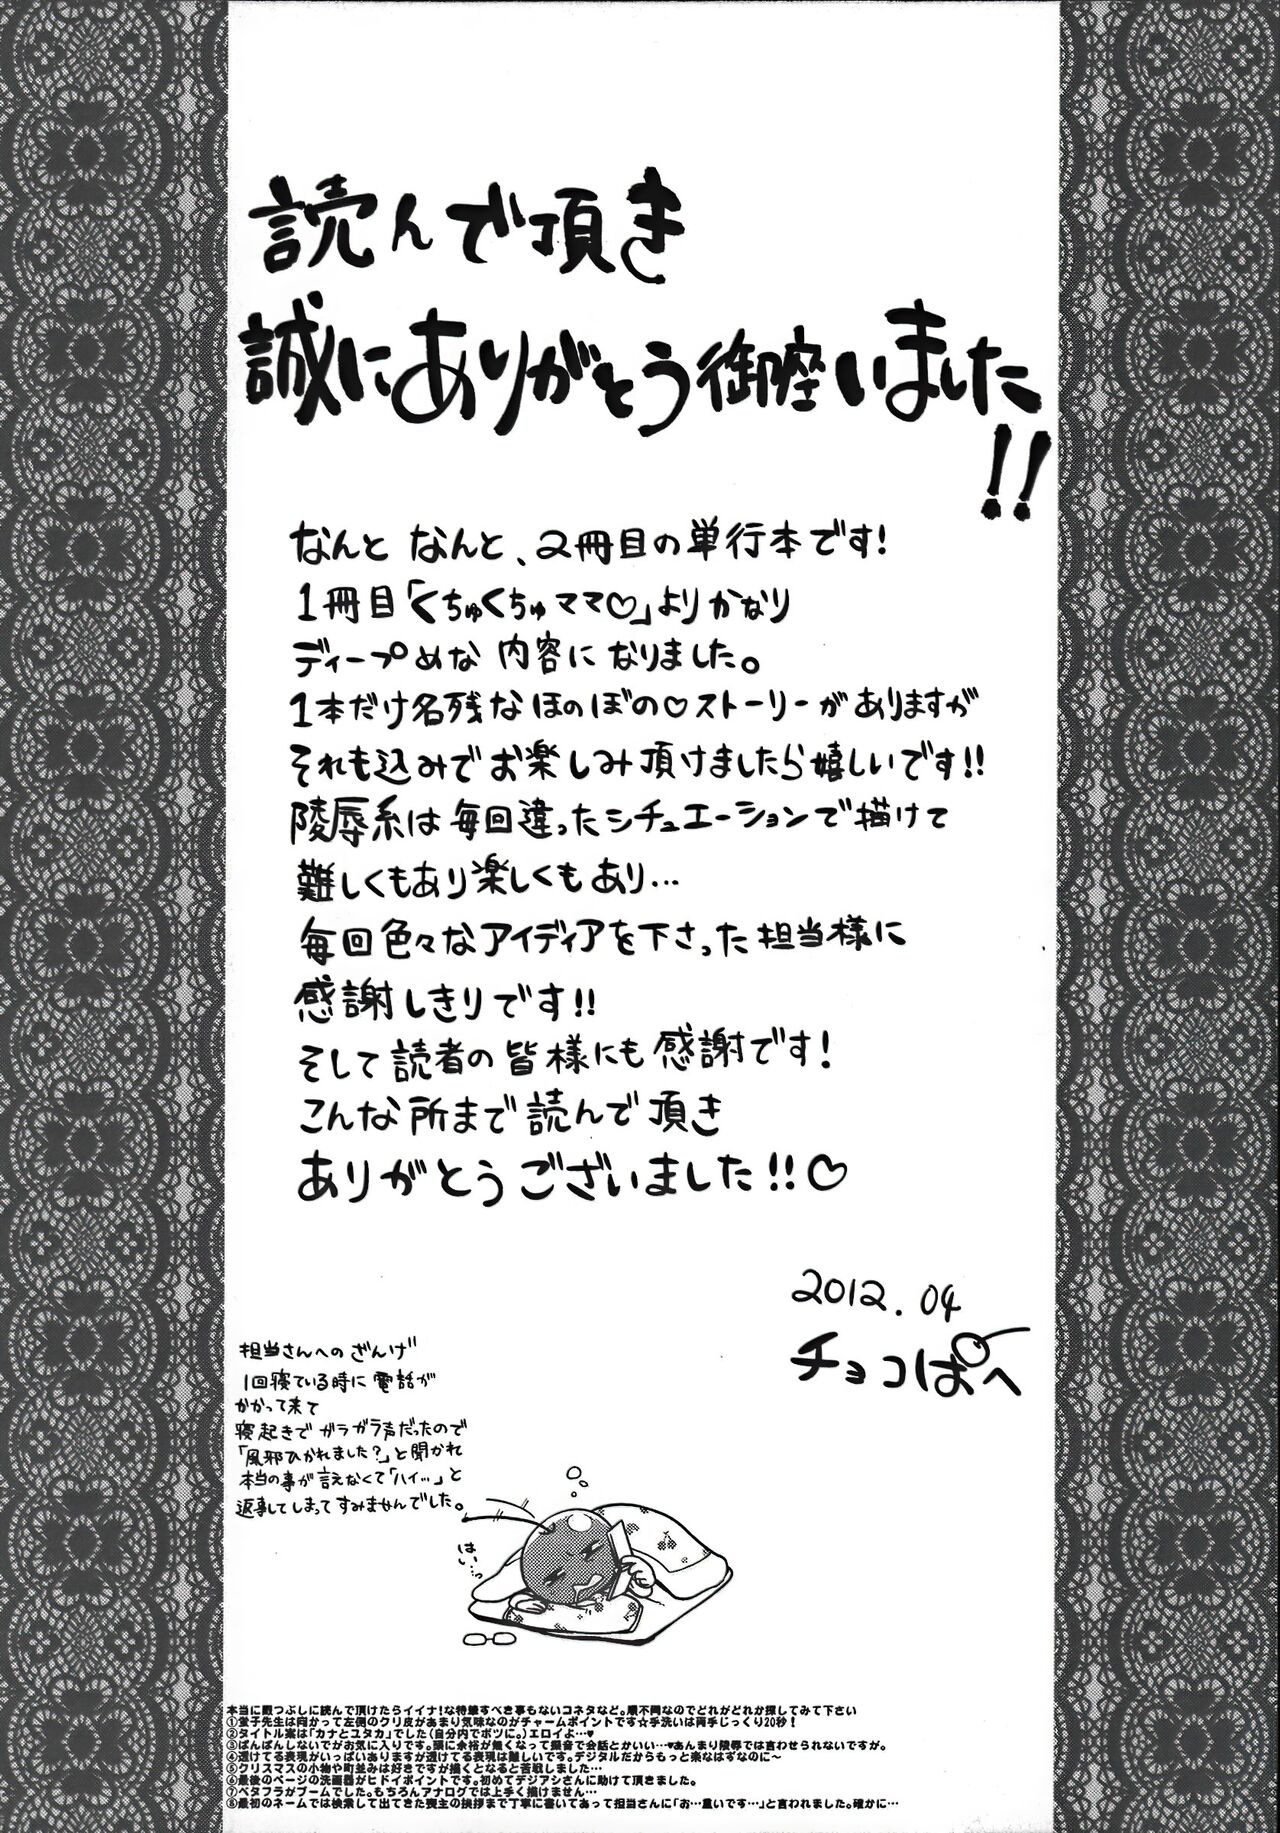 読んで頂き
誠にありがとう御座いました!!
なんと なんと、2冊目の単行本です!
1冊目「くちゅくちゅママ♡」よりかなり
ディープめな 内容になりました。
1本だけ名残なほのぼの♡ストーリーがありますが
それも込みでお楽しみ頂けましたら嬉しいです!!
陵辱系は毎回違ったシチュエーションで描けて
難しくもあり楽しくもあり…
毎回色々なアイディアを下さった担当様に
感謝しきりです!!
そして読者の皆様にも感謝です!
こんな所まで読んで頂き
ありがとうございました!!♡
2012.04
チョコぱへ
担当さんへのざんげ
1回寝ている時に電話が
かかって来て
寝起きでガラガラ声だったので
「風邪ひかれました?」と聞かれ
本当の事が言えなくて「ハイ…」と
返事してしまってすみませんでした。
はい…っ
本当に暇つぶしに読んで頂けたらイイナ!な特筆すべき事もないコネタなど。順不同なのでどれがどれか探してみて下さい
①蛍子先生は向かって左側のクリ皮があまり気味なのがチャームポイントです☆手洗いは両手じっくり20秒!
②タイトル案は「カナとユタカ」でした(自分内でボツに。)エロイド…♥
③ぱんぱんしないでがお気に入りです。頭に余裕が無くなって擬音で会話とかいい…♥あんまり陵辱では言わせられないですが。
④透けてる表現がいっぱいありますが透けてる表現は難しいです。デジタルだからもっと楽なはずなのに～
⑤クリスマスの小物や町並みは好きですが描くとなると苦戦しました…
⑥最後のページの洗面器がヒドイポイントです。初めてデジアシさんに助けて頂きました。
⑦ベタフラがブームでした。もちろんアナログでは上手く描けません…
⑧最初のネームでは検索して出てきた喪主の挨拶まで丁寧に書いてあって担当さんに「お…重いです…」と言われました。確かに…